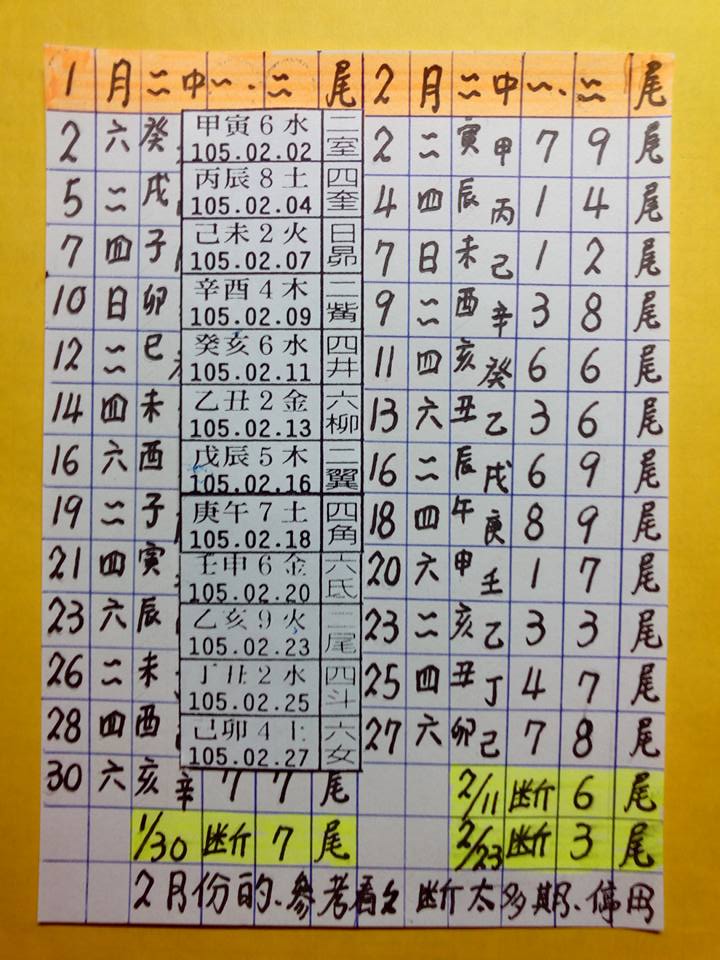 1 月 二中一、二 尾 2 月 二中一、二 尾
2 六 癸 甲寅6水 105.02.02 二室 2 二 寅甲 7 9 尾
5 二 戌 丙辰8土 105.02.04 四奎 4 四 辰丙 1 4 尾
7 四 子 己未2火 105.02.07 日昴 7 日 未己 1 2 尾
10 日 卯 辛酉4木 105.02.09 二觜 9 二 酉辛 3 8 尾
12 二 巳 癸亥6水 105.02.11 四井 11 四 亥癸 6 6 尾
14 四 未 乙丑2金 105.02.13 六柳 13 六 丑乙 3 6 尾
16 六 酉 戊辰5木 105.02.16 二翼 16 二 辰戌 6 9 尾
19 二 子 庚午7土 105.02.18 四角 18 四 午庚 8 9 尾
21 四 寅 壬申6金 105.02.20 六氐 20 六 申壬 1 7 尾
23 六 辰 乙亥9火 105.02.23 二尾 23 二 亥乙 3 3 尾
26 二 未 丁丑2水 105.02.25 四斗 25 四 丑丁 4 7 尾
28 四 酉 己卯4土 105.02.27 六女 27 六 卯己 7 8 尾
30 六 亥辛 7 7 尾 2/11 断 6 尾
1/30 断 7 尾 2/23 断 3 尾
2月份的、參考看 断太多期、停用